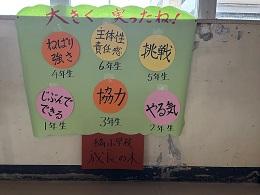 大きく実ったね！
ねばり
強さ
4年生
主体性
責任感
6年生
挑戦
5年生
じぶんで
できる
1年生
協力
3年生
やる気
2年生
小学校
成長の木